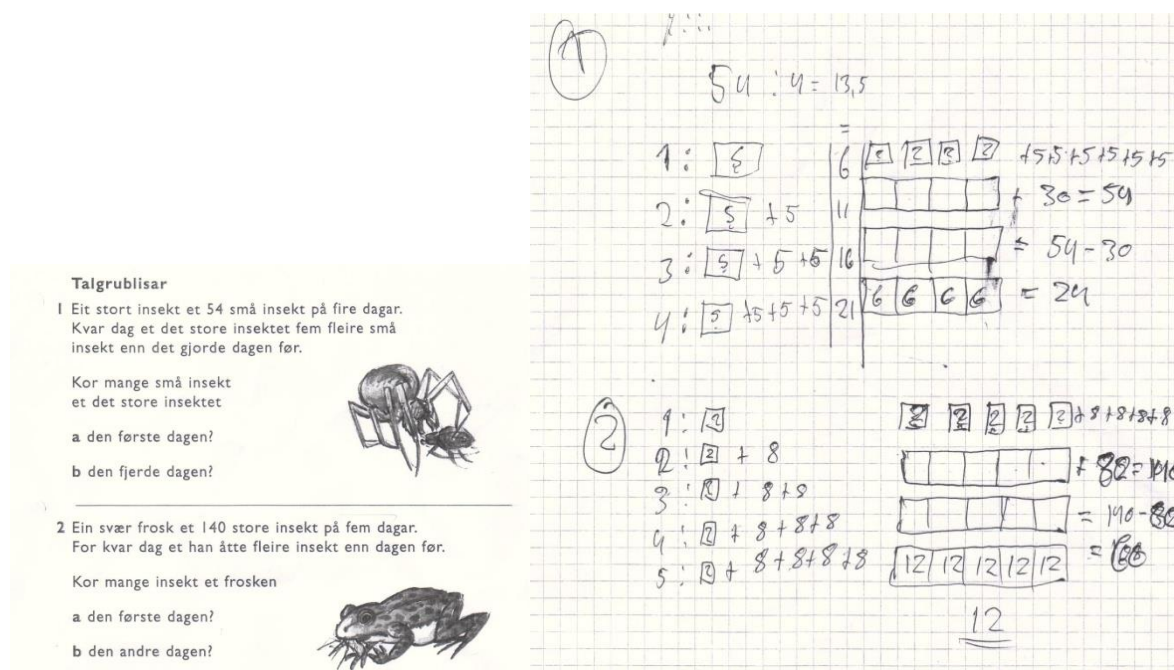 Talgrublisar
1 Eit stort insekt et 54 små insekt på fire dagar.
Kvar dag et det store insektet fem fleire små
insekt enn det gjorde dagen før.
Kor mange små insekt
et det store insektet
a den første dagen?
b den fjerde dagen?
2 Ein svær frosk et 140 store insekt på fem dagar.
For kvar dag et han åtte fleire insekt enn dagen før.
Kor mange insekt et frosken
a den første dagen?
b den andre dagen?
1
54 : 4 = 13,5
=
1: 6 +5+5+5+5+5+5
2: +5 11 + 30 = 54
3: +5+5 16 = 54-30
4: +5+5+5 21 6 6 6 6 = 24
2
1: +8+8+8+8
2: + 8
3: + 8+8
4: + 8+8+8
5: + 8+8+8+8 12 12 12 12 12
12